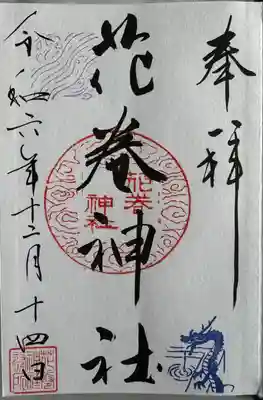 奉拝
花巻神社
花巻
神社
令和六年十二月十四日